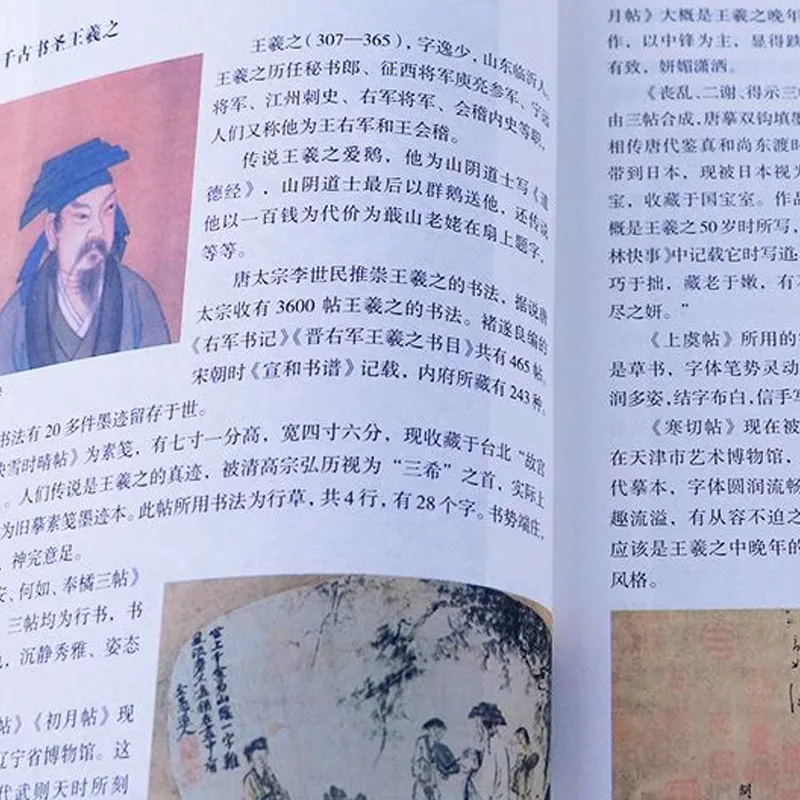 千古书圣王羲之
王羲之(307—365),字逸少,山东临沂人。
王羲之历任秘书郎、征西将军庾亮参军、宁远
将军、江州刺史、右军将军、会稽内史等职,
人们又称他为王右军和王会稽。
传说王羲之爱鹅,他为山阴道士写《道
德经》,山阴道士最后以群鹅送他,还传说
他以一百钱为代价为蕺山老姥在扇上题字,
等等。
唐太宗李世民推崇王羲之的书法,据说唐
太宗收有3600 帖王羲之的书法。褚遂良编的
《右军书记》《晋右军王羲之书目》共有465帖。
宋朝时《宣和书谱》记载,内府所藏有243种。
书法有20多件墨迹留存于世。
快雪时晴帖》为素笺,有七寸一分高,宽四寸六分,现收藏于台北“故宫
。人们传说是王羲之的真迹,被清高宗弘历视为“三希”之首,实际上
为旧摹素笺墨迹本。此帖所用书法为行草,共4行,有28个字。书势端庄,
,神完意足。
安、何如、奉橘三帖》
三帖均为行书,书
,沉静秀雅、姿态
帖》《初月帖》现
辽宁省博物馆。这
代武则天时所刻
月帖》大概是王羲之晚年
作,以中锋为主,显得跌
有致,妍媚潇洒。
《丧乱、二谢、得示三帖
由三帖合成,唐摹双钩填墨
相传唐代鉴真和尚东渡时
带到日本,现被日本视为
宝,收藏于国宝室。作品
概是王羲之50岁时所写,
林快事》中记载它时写道:
巧于拙,藏老于嫩,有不
尽之妍。”
《上虞帖》所用的
是草书,字体笔势灵动
润多姿,结字布白,信手写
《寒切帖》现在被
在天津市艺术博物馆,
代摹本,字体圆润流畅
趣流溢,有从容不迫之
应该是王羲之中晚年的
风格。